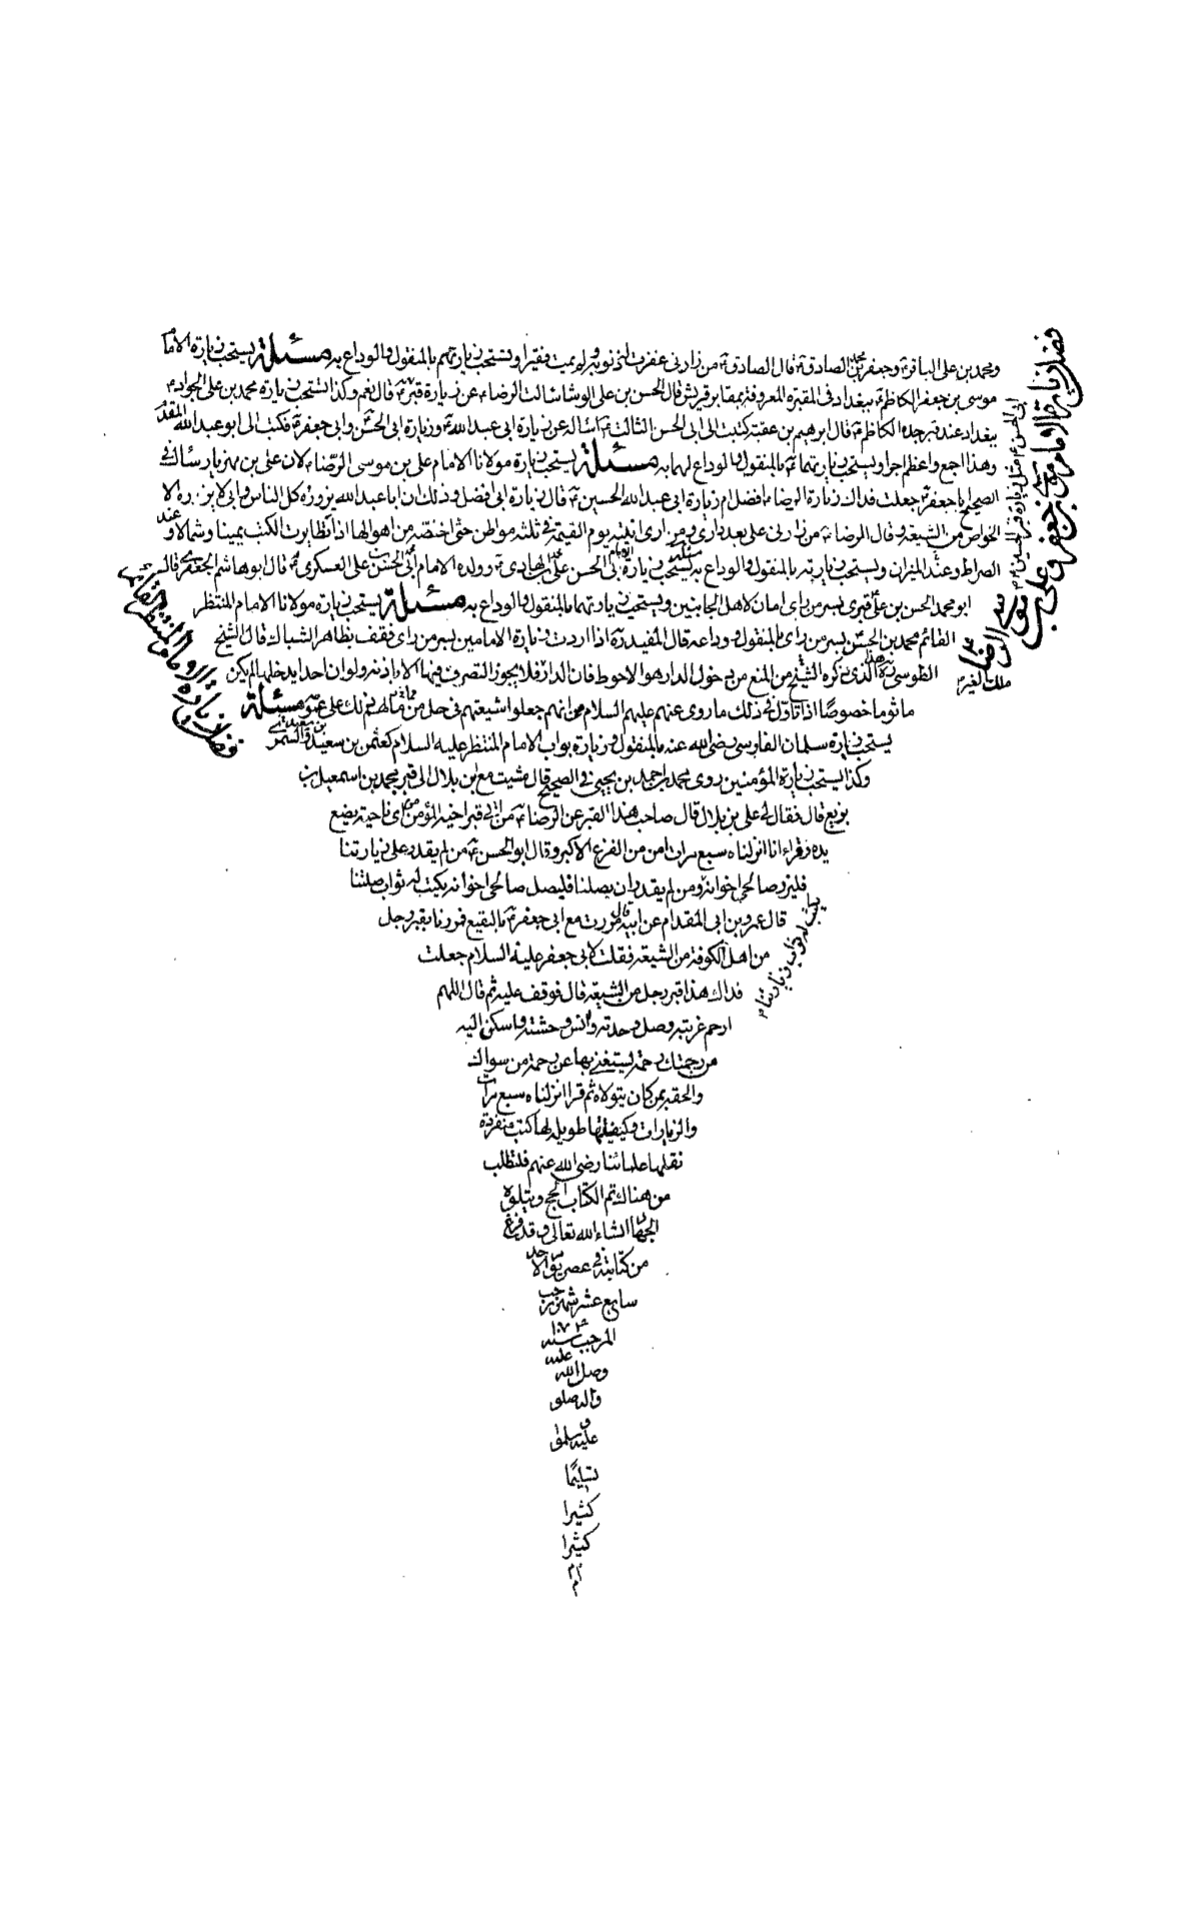 ومحمد بن علی الباقر ع وجعفر بن محمد الصادق ع قال الصادق ع من زارنی غفرت له ذنوبه ولم یمت فقیرا ویستحب زیارتهم بالمنقول والوداع به مسئلة یستحب زیارة الامام
موسی بن جعفر الکاظم ع ببغداد فی المقبرة المعروفة بمقابر قریش قال الحسن بن علی الوشا سالت الرضا ع عن زیارة قبر قال نعم وکذا یستحب زیارة محمد بن علی الجواد ع
ببغداد عند قبر جده الکاظم ع قال ابرهیم بن عقبة کتبت الی ابی الحسن الثالث ع اساله عن زیارة ابی عبد الله ع وزیارة ابی الحسن وابی جعفر ع فکتب الی ابو عبد الله المقدم
وهذا اجمع واعظم اجرا ویستحب زیارتهما ع بالمنقول والوداع لهما به مسئلة یستحب زیارة مولانا الامام علی بن موسی الرضا ع لان علی بن مهزیار سال فی
الصحیح ابا جعفر ع جعلت فداك زیارة الرضا ع افضل ام زیارة ابی عبد الله الحسین ع قال زیارة ابی افضل وذلك ان ابا عبد الله یزوره کل الناس وابی لا یزوره الا
الخواص من الشیعة وقال الرضا ع من زارنی علی بعد داری ومزاری اتیته یوم القیمة فی ثلثة مواطن حتی اخلصه من اهوالها اذا تطایرت الکتب یمینا وشمالا وعند
الصراط وعند المیزان ویستحب زیارته بالمنقول والوداع به مسئلة یستحب زیارة الامام ابی الحسن علی الهادی ع وولده الامام ابی الحسن علی العسکری ع قال ابو هاشم الجعفری قال
ابو محمد الحسن بن علی ع قبری بسر من رای امان لاهل الجانبین ویستحب زیارتهما بالمنقول والوداع به مسئلة یستحب زیارة مولانا الامام المنتظر
القائم محمد بن الحسن بسر من رای بالمنقول ووداعه قال المفید ره اذا اردت زیارة الامامین بسر من رای فقف بظاهر الشباك قال الشیخ
الطوسی ره هذا الذی ذکره الشیخ من المنع من دخول الدار هو الاحوط فان الدار فلا یجوز التصرف فیها الا باذنه ولو ان احدا یدخلها لم یکن
ماثوما خصوصا اذا تاول فی ذلك ما روی عنهم علیهم السلام من انهم جعلوا شیعتهم فی حل من مالهم وذلك علی عمومه مسئلة
یستحب زیارة سلمان الفارسی رضی الله عنه بالمنقول وزیارة بواب الامام المنتظر علیه السلام کعثمن بن سعید والسمری
وکذا یستحب زیارة المؤمنین روی محمد بن احمد بن یحیی فی الصحیح قال مشیت مع ابن بلال الی قبر محمد بن اسمعیل بن
بزیع قال فقال لی علی بن بلال قال صاحب هذا القبر عن الرضا ع من اتی قبر اخیه المؤمن من ای ناحیة یضع
یده وقراء انا انزلناه سبع مرات امن من الفزع الاکبر وقال ابو الحسن ع من لم یقدر علی زیارتنا
فلیزر صالحی اخوانه ومن لم یقدر ان یصلنا فلیصل صالحی اخوانه یکتب له ثواب صلتنا
قال عمرو بن ابی المقدام عن ابیه قال مررت مع ابی جعفر ع بالبقیع فمررنا بقبر رجل
من اهل الکوفة من الشیعة فقلت لابی جعفر علیه السلام جعلت
فداك هذا قبر رجل من الشیعة قال فوقف علیه ثم قال اللهم
ارحم غربته وصل وحدته وانس وحشته واسکن الیه
من رحمتك رحمة یستغنی بها عن رحمة من سواك
والحقه بمن کان یتولاه ثم قرا انا انزلناه سبع مرات
والزیارات وکیفیتها طویلة لها کتب منفردة
نقلها علمائنا رضی الله عنهم فلتطلب
من هناك تم الکتاب الحج ویتلوه
الجهاد انشاء الله تعالی وقد فرغ
من کتابته فی عصر یوم الاحد
سابع عشر شهر رجب
المرجب سنة ۱۰۷۳
وصل الله علیه
واله صلوة
علیه وسلموا
تسلیما
کثیرا
کثیرا
فضل زیارة الامام موسی بن جعفر وعلی بن
موسی الرضا
فضل زیارة الامام المنتظر القائم ع
یکتب له ثواب زیارتنا م